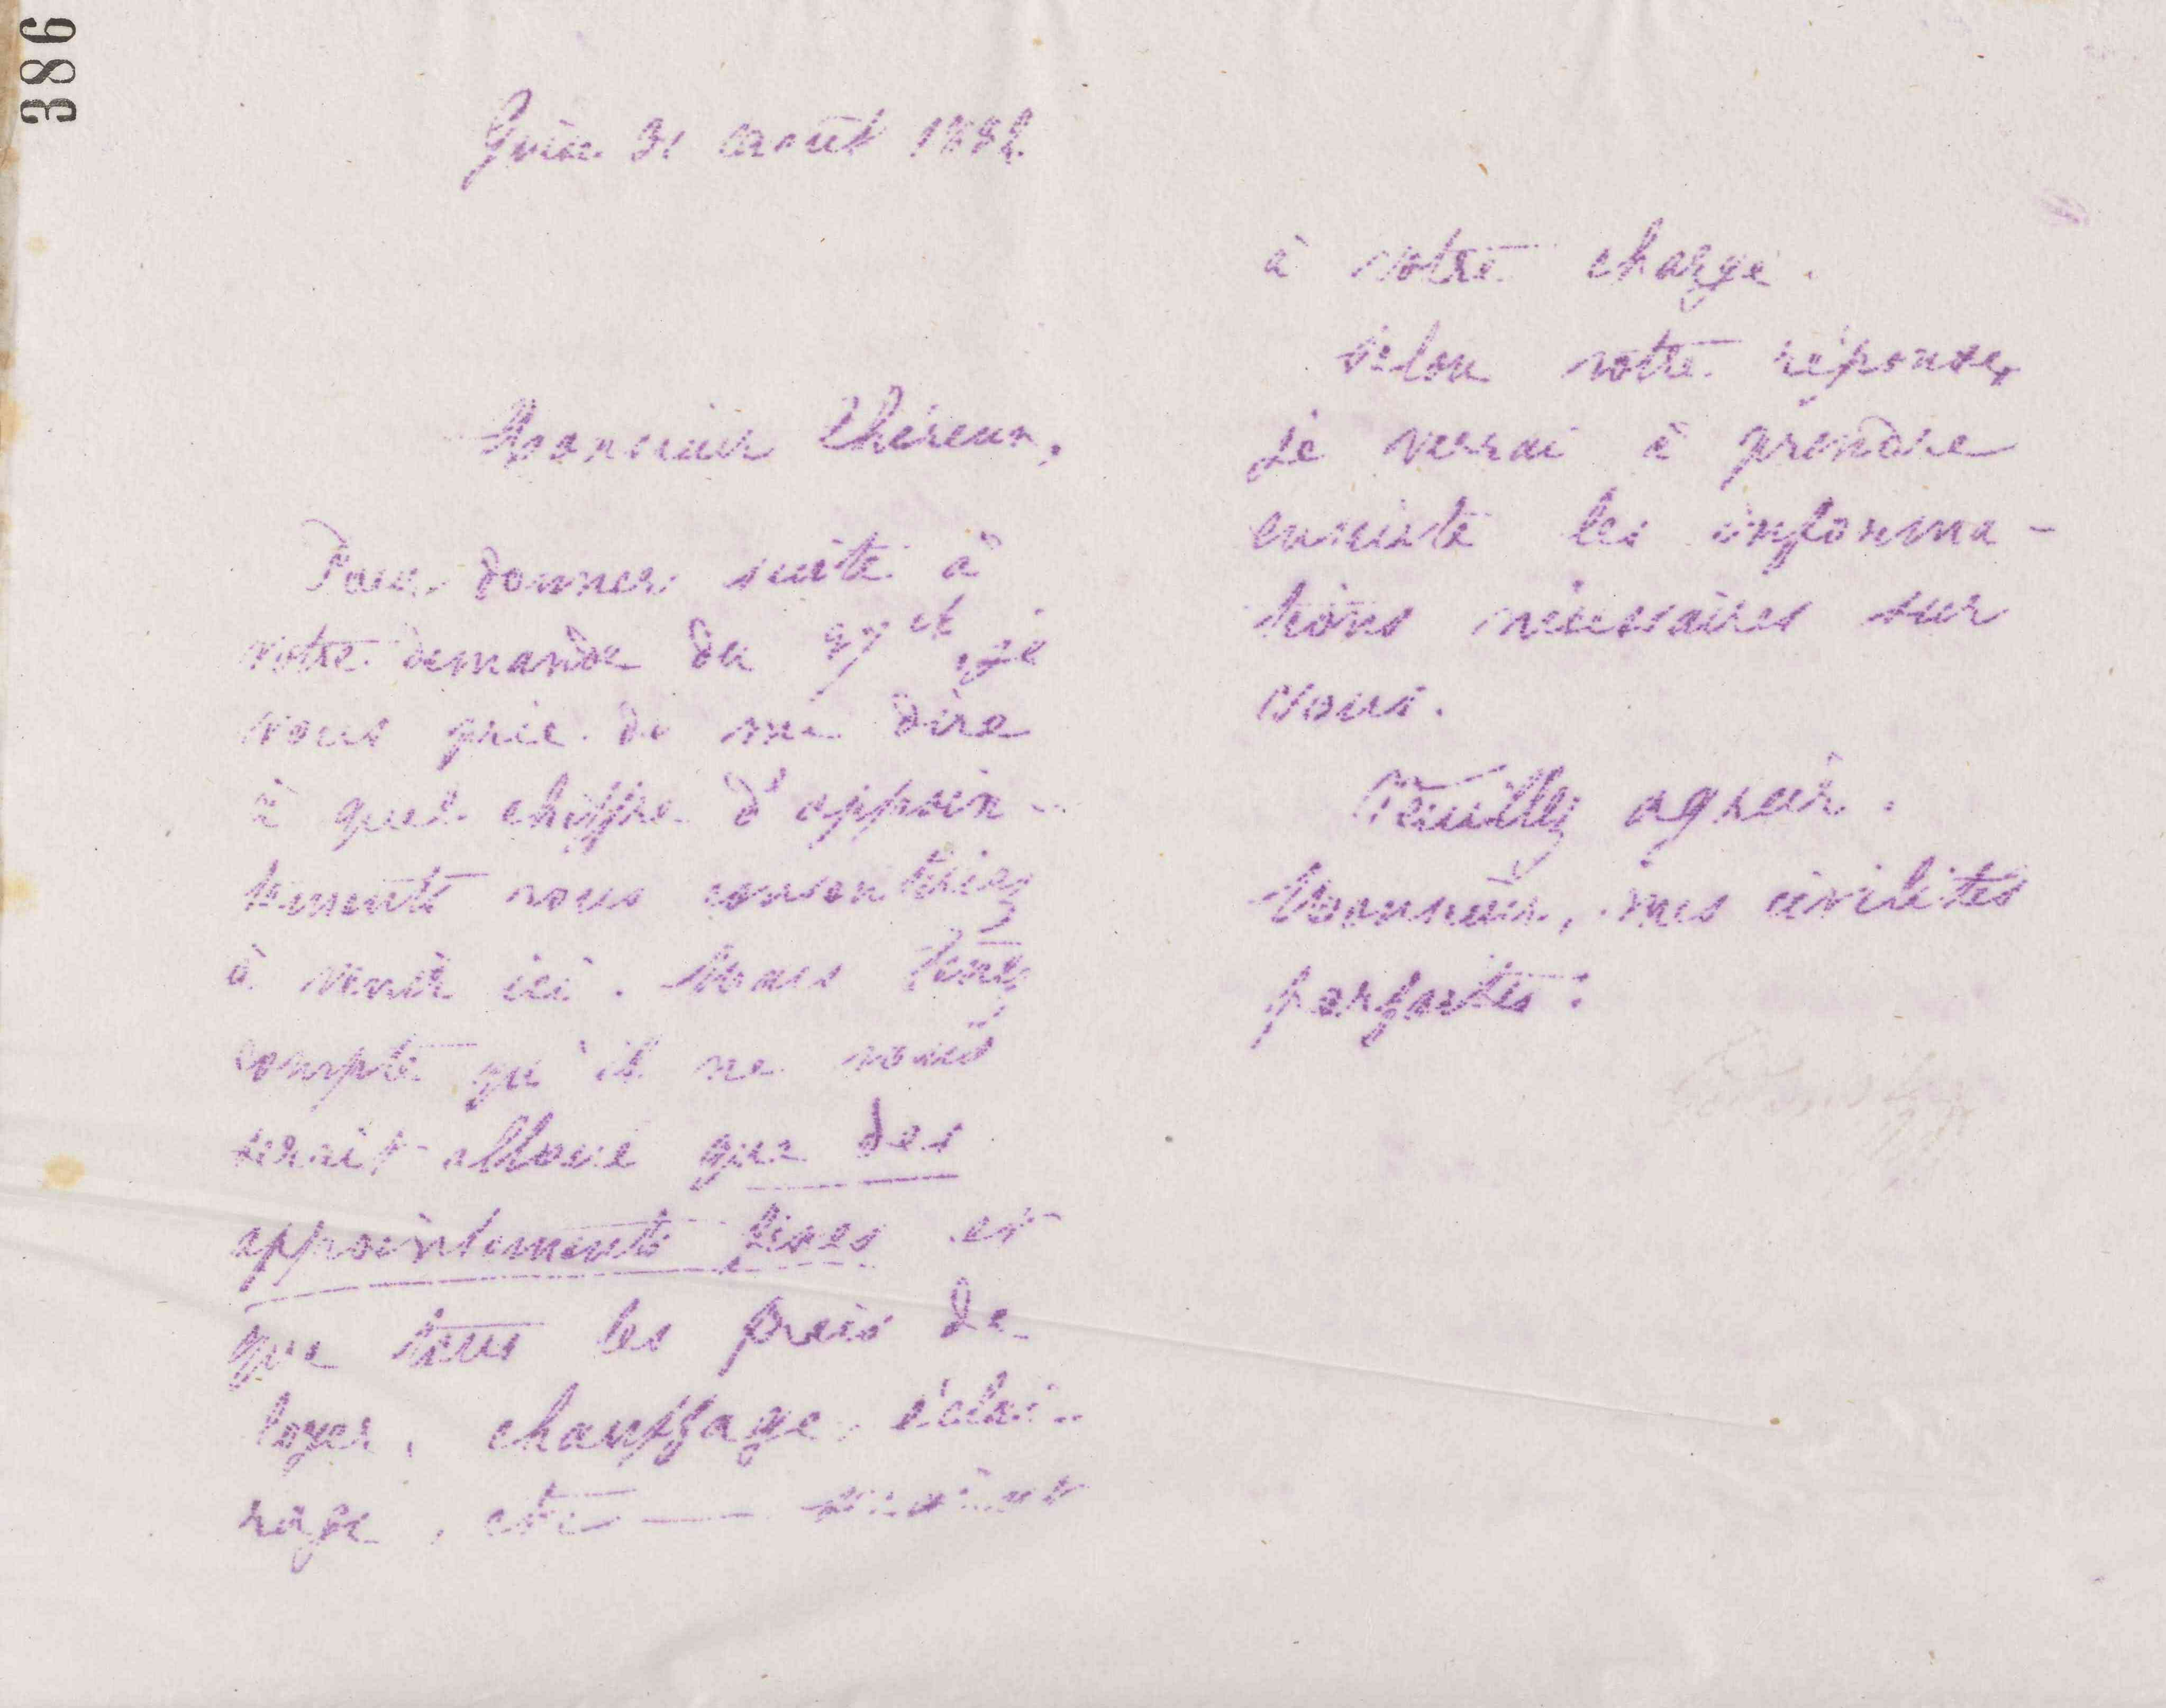 386
Guise 31 août 1882
Monsieur Chéreux,
Pour donner suite à
votre demande du 27 ct, je
vous prie de me dire
à quel chiffre d'appoin-
tements vous consentiriez
à venir ici. Vous tenez
compte qu'il ne vous
serait alloué que des
appointements fixes et
que tous les frais de
loyer, chauffage, éclai-
rage, etc seraient
à votre charge.
Selon votre réponse,
je verrai à prendre
ensuite les informa-
tions nécessaires sur
vous.
Veuillez agréer,
Monsieur, mes civilités
parfaites: